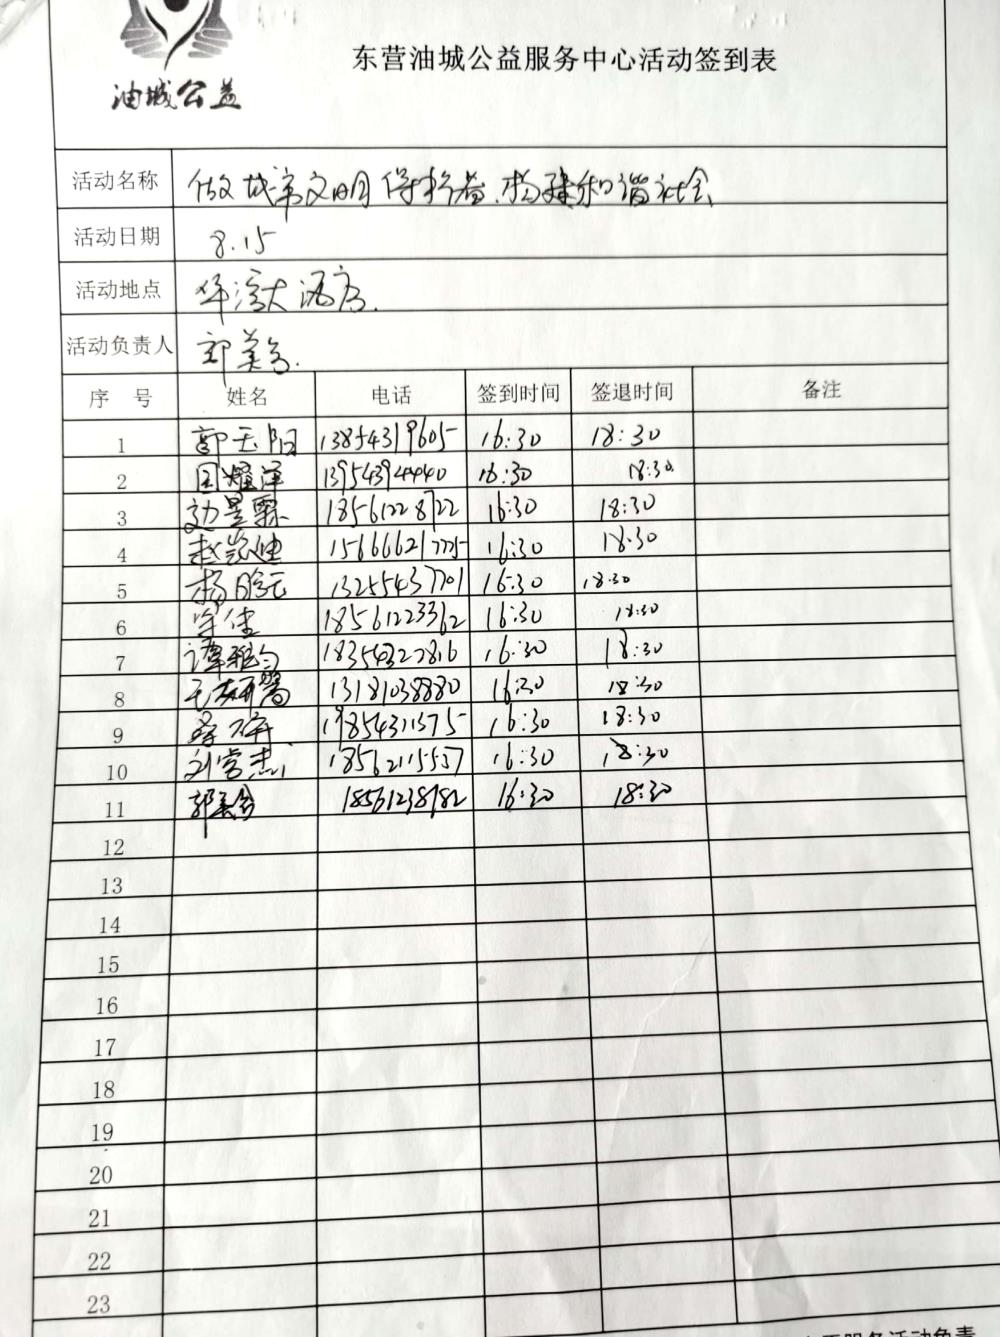 油城公益
东营油城公益服务中心活动签到表
活动名称 做城市文明保护者、构建和谐社会
活动日期 8.15
活动地点 华滨大酒店.
活动负责人 郭美芳.
序号 姓名 电话 签到时间 签退时间 备注
1 郭玉阳 13854319605 16:30 18:30
2 13954394440 16:30 18:30
3 18561228722 16:30 18:30
4 赵凯迪 15666621775 16:30 18:30
5 杨皓云 13255437701 16:30 18:30
6 宋佳 18561223362 16:30 18:30
7 谭雅匀 18354327816 16:30 18:30
8 13181038880 16:30 18:30
9 19854311375 16:30 18:30
10 刘常杰 18562115537 16:30 18:30
11 郭美芳 18561238982 16:30 18:30
12
13
14
15
16
17
18
19
20
21
22
23